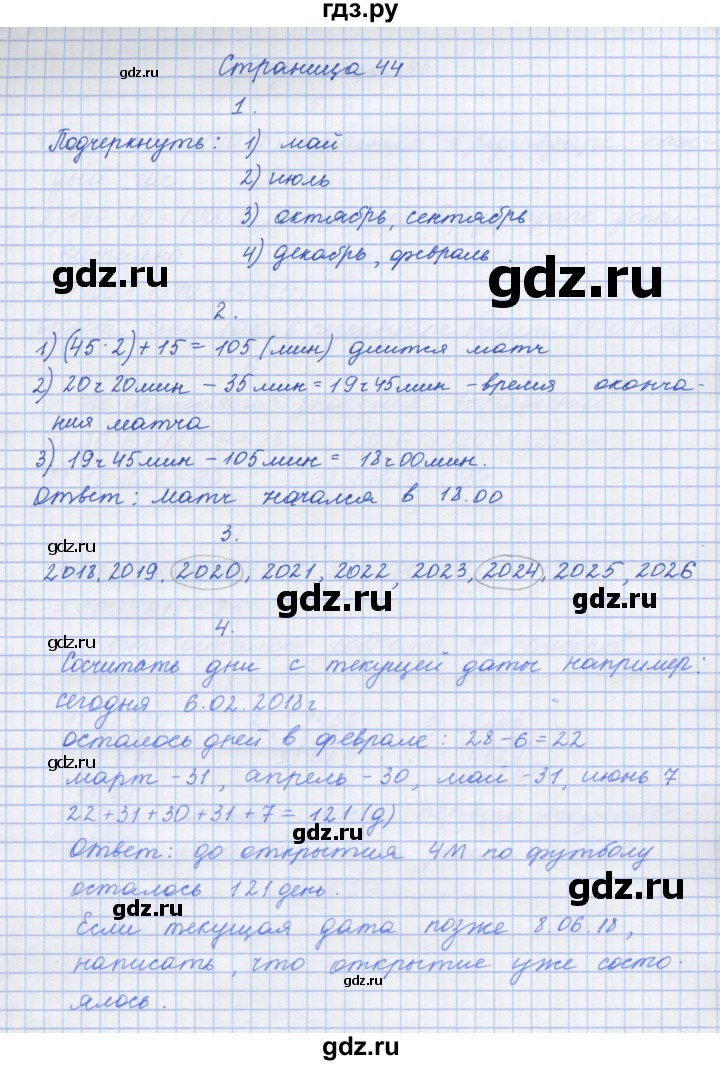 гдз.ру
gdz.ru
Страница 44
1.
Подчеркнуть: 1) май
2) июль
3) октябрь, сентябрь
4) декабрь, февраль.
gdz.ru
gdz.ru
2.
1) (45·2)+15=105 (мин) длится матч
2) 20ч 20мин - 35мин = 19ч 45мин - время оконча-
ния матча
3) 19ч 45мин - 105мин = 18ч 00мин.
gdz.ru
Ответ: матч начался в 18.00
3.
gdz.ru
2018, 2019, 2020, 2021, 2022, 2023, 2024, 2025, 2026
gdz.ru
gdz.ru
4.
Сосчитать дни с текущей даты например:
сегодня 6.02.2018г.
осталось дней в феврале: 28-6=22
gdz.ru
март-31, апрель-30, май-31, июнь 7
22+31+30+31+7=121(д)
gdz.ru
Ответ: до открытия ЧМ по футболу
осталось 121 день.
gdz.ru
gdz.ru
Если текущая дата позже 8.06.18,
написать, что открытие уже состо-
gdz.ru
ялось.
gdz.ru